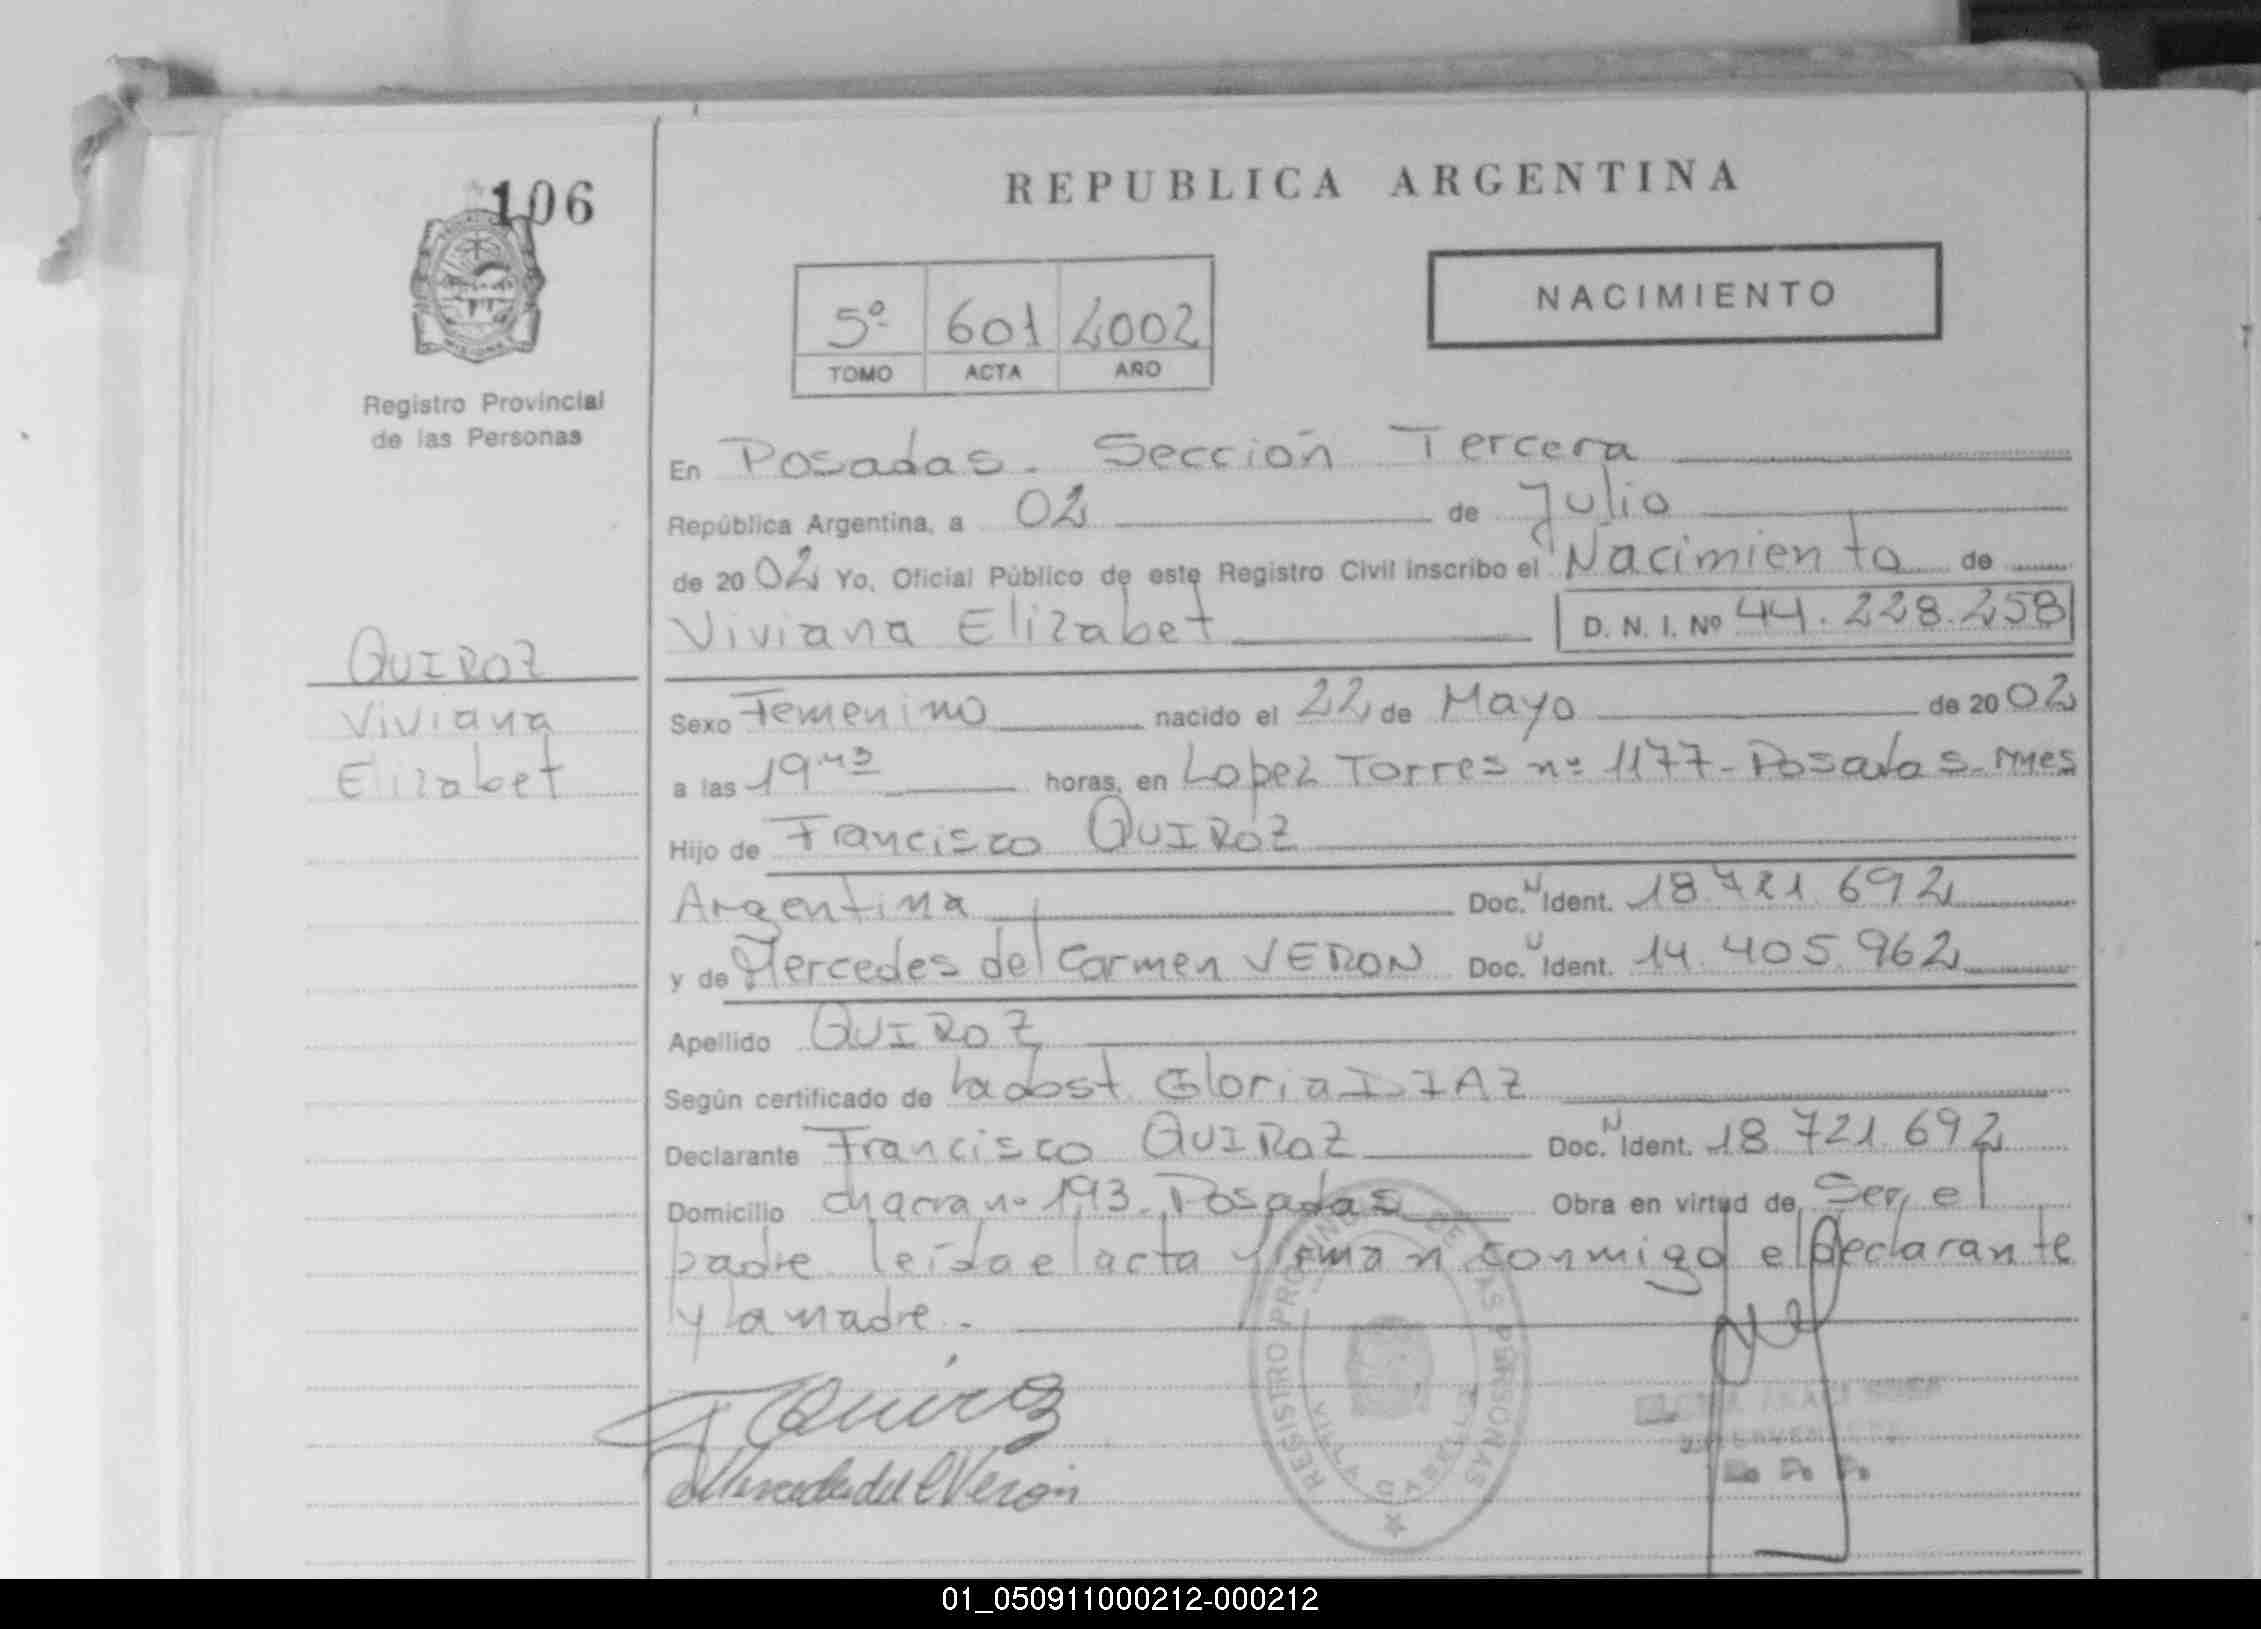 106
REPUBLICA ARGENTINA
NACIMIENTO
5º 601 2002
TOMO ACTA AÑO
Registro Provincial
de las Personas
En Posadas. Sección Tercera
República Argentina, a 02 de Julio
de 2002 Yo, Oficial Público de este Registro Civil inscribo el Nacimiento de
Viviana Elizabet D. N. I. Nº 44.228.258
QUIROZ
Viviana
Elizabet
Sexo Femenino nacido el 22 de Mayo de 2002
a las 19 43 horas, en Lopez Torres nº 1177 - Posadas - Mnes
Hijo de Francisco QUIROZ
Argentina Doc. N Ident. 18.721.692
y de Mercedes del Carmen VERON Doc. U Ident. 14.405.962
Apellido QUIROZ
Según certificado de la obst. Gloria DIAZ
Declarante Francisco QUIROZ Doc. N Ident. 18.721.692
Domicilio chacra nº 193 - Posadas Obra en virtud de Ser el
padre leída el acta y firman conmigo el declarante
y la madre.
F Quiroz
Mercedes del C Veron
REGISTRO PROVINCIAL DE LAS PERSONAS
01_050911000212-000212